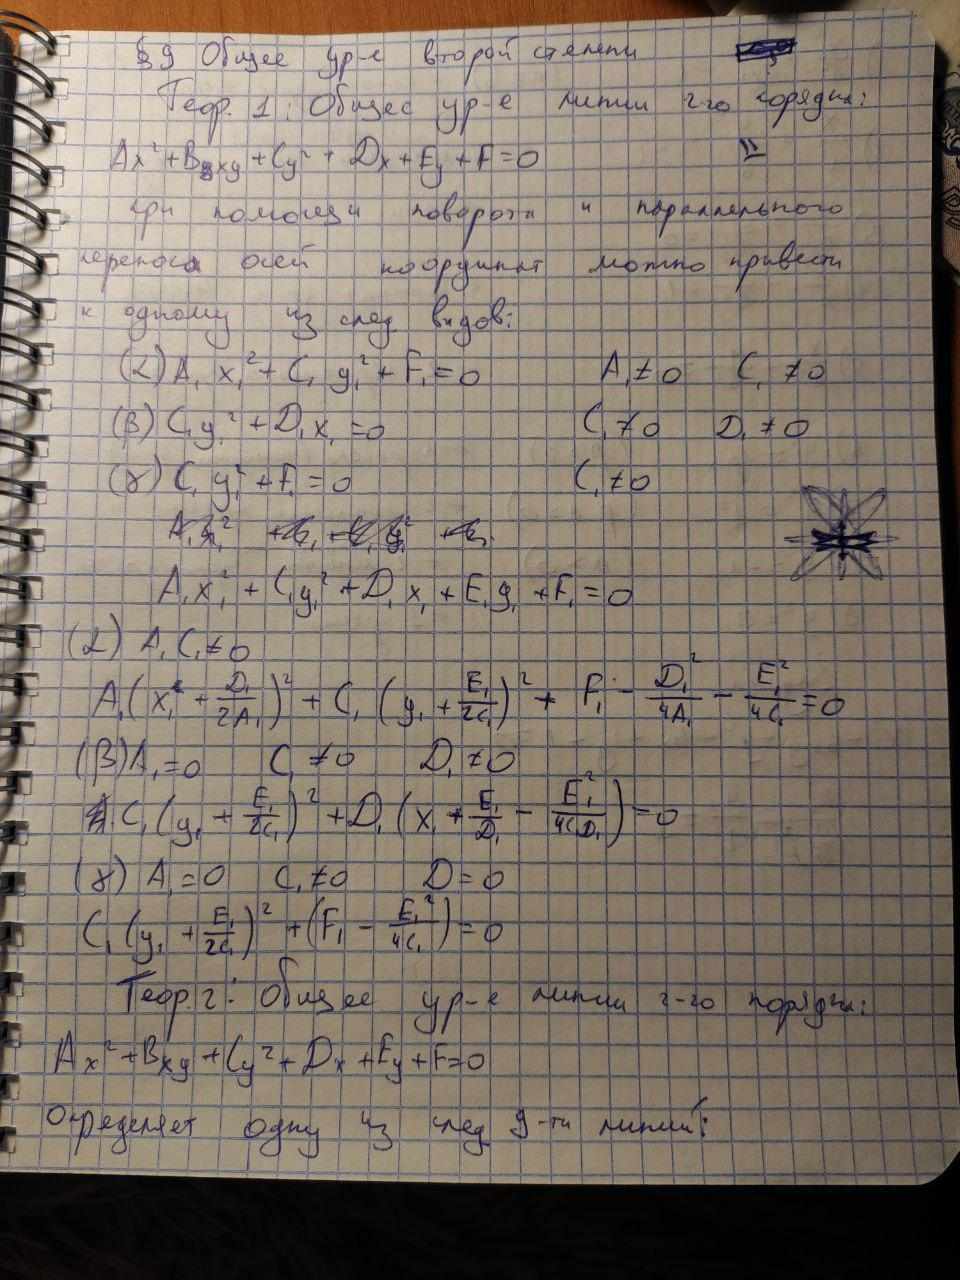 §9 Общее ур-е второй степени
Теор. 1: Общее ур-е линии 2-го порядка:
Ax² + Bxy + Cy² + Dx + Ey + F = 0
при помощи поворота и параллельного
переноса осей координат можно привести
к одному из след видов:
(α) A₁x₁² + C₁y₁² + F₁ = 0 A₁ ≠ 0 C₁ ≠ 0
(β) C₁y₁² + D₁x₁ = 0 C₁ ≠ 0 D₁ ≠ 0
(γ) C₁y₁² + F₁ = 0 C₁ ≠ 0
A₁x₁² + C₁y₁² + D₁x₁ + E₁y₁ + F₁ = 0
(α) A₁C₁ ≠ 0
A₁(x₁ + D₁/2A₁)² + C₁(y₁ + E₁/2C₁)² + F₁ - D₁²/4A₁ - E₁²/4C₁ = 0
(β) A₁ = 0 C₁ ≠ 0 D₁ ≠ 0
C₁(y₁ + E₁/2C₁)² + D₁(x₁ + E₁/D₁ - E₁²/4C₁D₁) = 0
(γ) A₁ = 0 C₁ ≠ 0 D = 0
C₁(y₁ + E₁/2C₁)² + (F₁ - E₁²/4C₁) = 0
Теор. 2: Общее ур-е линии 2-го порядка:
Ax² + Bxy + Cy² + Dx + Ey + F = 0
Определяет одну из след 9-ти линий: